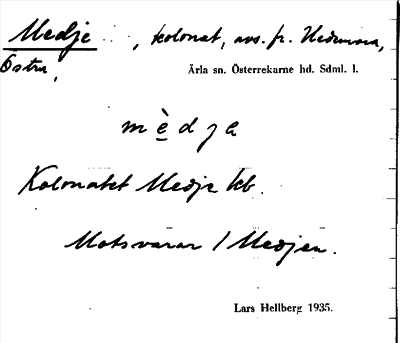 Medje , kolonat, avs. fr. Hedensö,
Östra, Ärla sn. Österrekarne hd. Sdml. l.
mèdja
Kolonatet Medje kb.
Motsvarar / Medjen.
Lars Hellberg 1935.